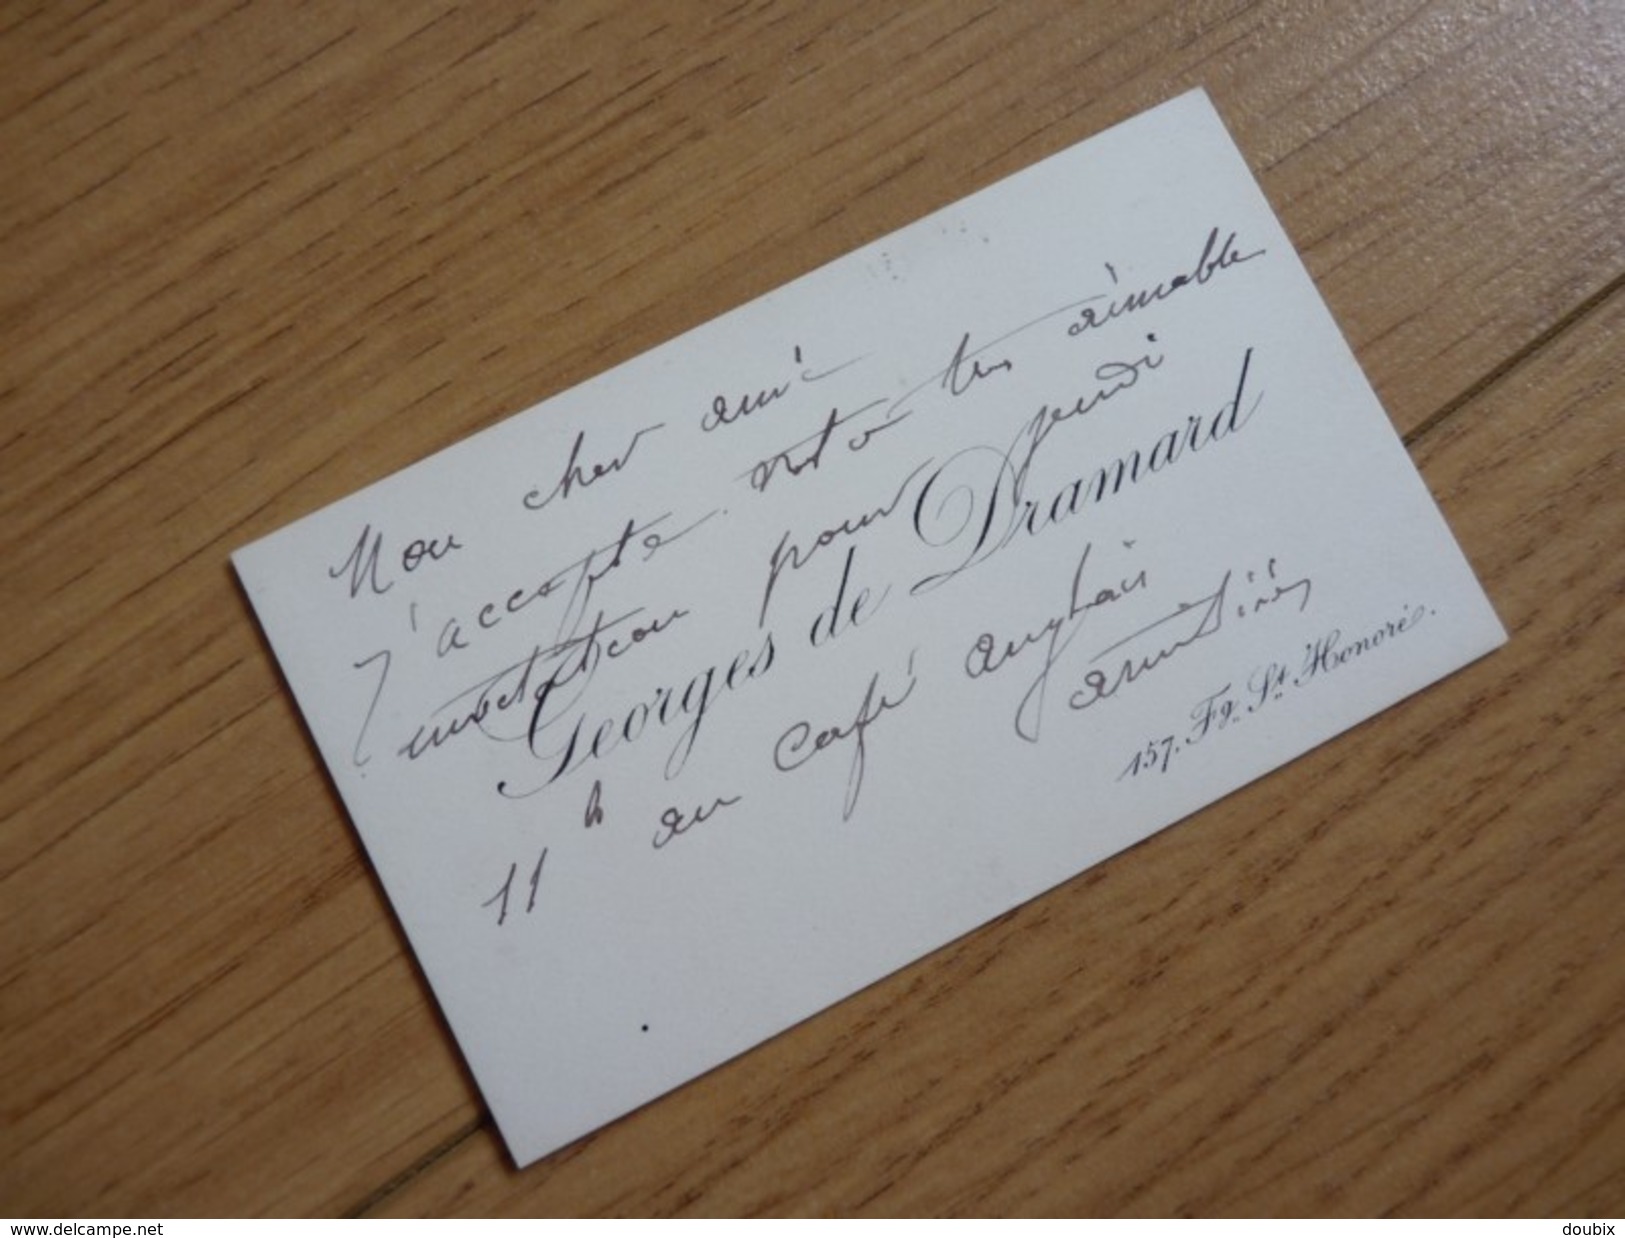 Mon cher ami
J'accepte votre très aimable
invitation pour jeudi
Georges de Dramard
11h au café anglais
amitiés
157, Fg. St. Honoré.
www.delcampe.net
doubix